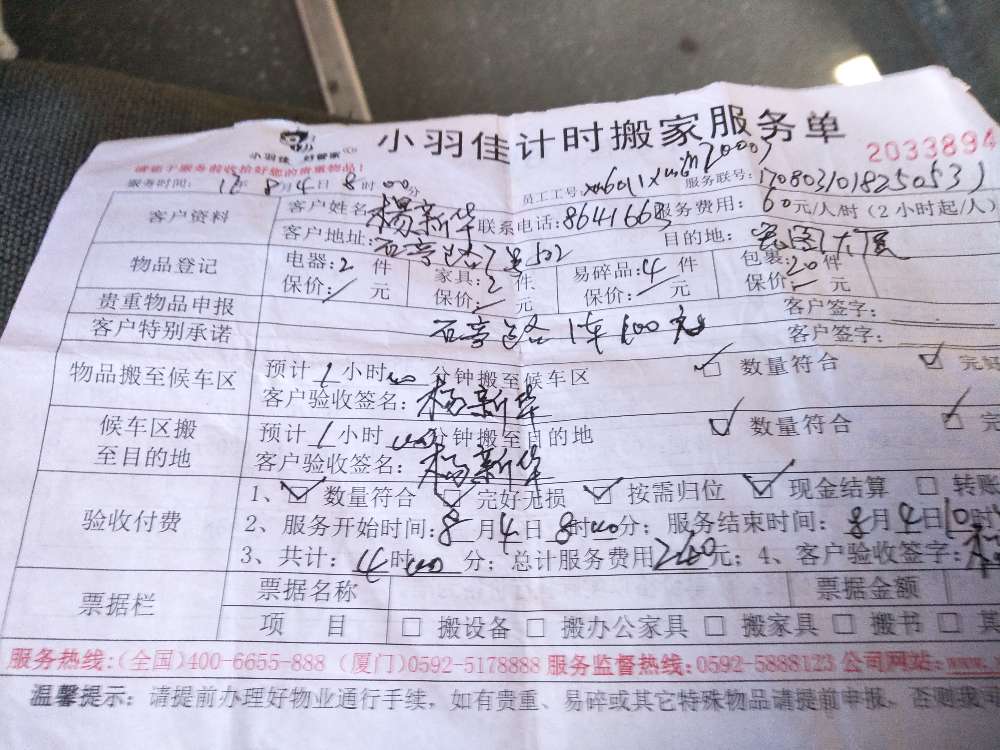 小羽佳计时搬家服务单
小羽佳 好管家
2033894
请您于服务前收拾好您的贵重物品!
服务时间: 8月4日8时00分 员工工号: 服务联号:170803101825053
客户资料 客户姓名:杨新华 联系电话:8641663 服务费用:60元/人/时(2小时起/人)
客户地址: 502 目的地: 大厦
物品登记 电器:2件 家具:2件 易碎品:4件 包裹:20件
保价:/元 保价:/元 保价:/元
贵重物品申报 客户签字:
客户特别承诺 1车100元 客户签字:
物品搬至候车区 预计1小时00分钟搬至候车区 数量符合 完好
客户验收签名:杨新华
候车区搬至目的地 预计1小时00分钟搬至目的地 数量符合 完
客户验收签名:杨新华
验收付费 1、数量符合 完好无损 按需归位 现金结算 转账
2、服务开始时间:8月4日8时00分; 服务结束时间:8月4日10时
3、共计:4时00分; 总计服务费用240元; 4、客户验收签字:杨
票据栏 票据名称 票据金额
项目 搬设备 搬办公家具 搬家具 搬书 其
服务热线:(全国)400-6655-888 (厦门)0592-5178888 服务监督热线:0592-5888123 公司网站:www.
温馨提示: 请提前办理好物业通行手续,如有贵重、易碎或其它特殊物品请提前申报,否则我司